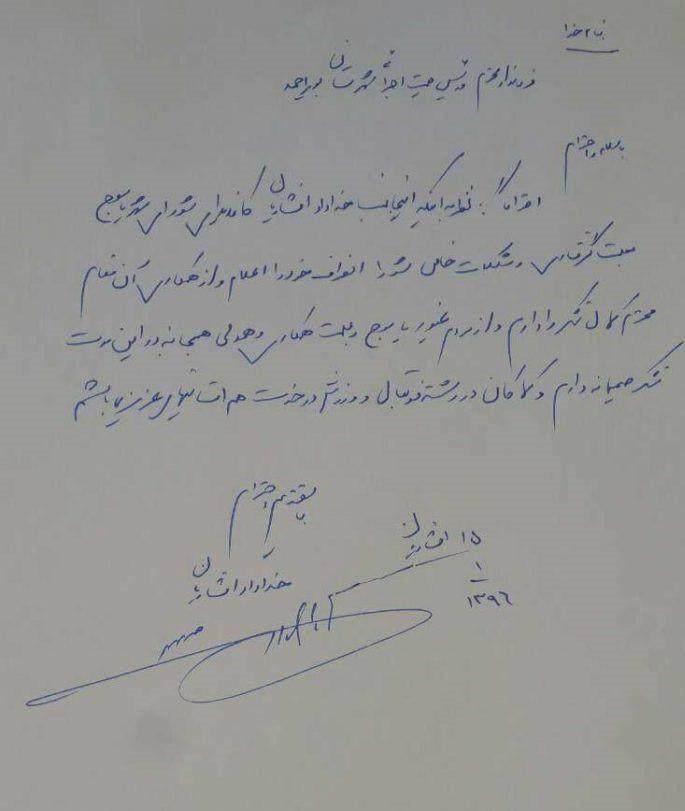 بنام خدا
فرماندار محترم و رئیس هیئت اجرائی شهرستان بویراحمد
با سلام و احترام
احتراماً؛ نظر به اینکه اینجانب خداداد افشاریان کاندیدای شورای شهر یاسوج
بعلت گرفتاری و مشکلات خاص شورا انصراف خود را اعلام و از همکاری آن مقام
محترم کمال تشکر را دارم و از مردم غیور یاسوج بعلت همکاری و همدلی همه جانبه در این مدت
تشکر صمیمانه دارم و کماکان در رشته فوتبال و ورزش در خدمت هم استانیهای عزیز میباشم
با تقدیم احترام
خداداد افشاریان
۱۵ افشاریان
۱
۱۳۹۶